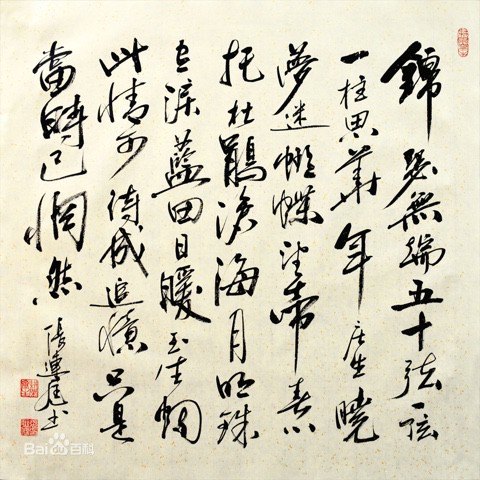 錦瑟無端五十弦一弦
一柱思華年庄生曉
夢迷蝴蝶望帝春心
托杜鵑滄海月明珠
有淚藍田日暖玉生烟
此情可待成追憶只是
當時已惘然
張連书
Bai百科